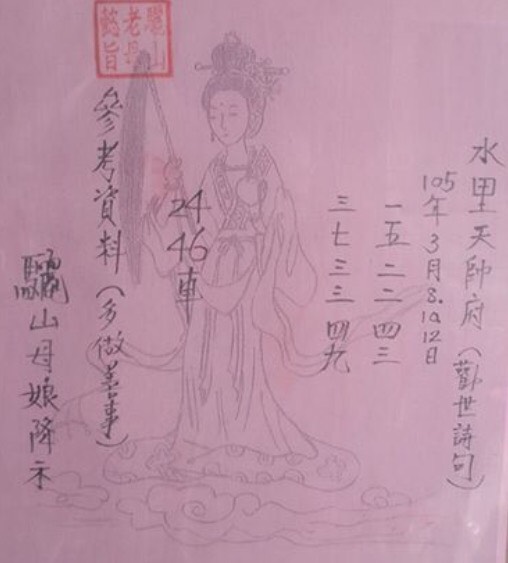 水里天帥府(勸世詩句)
105年3月8.10.12日
一五二二四三
三七三三四九
24
46車
參考資料(多做善事)
驪山母娘降示
驪山
老母
懿旨